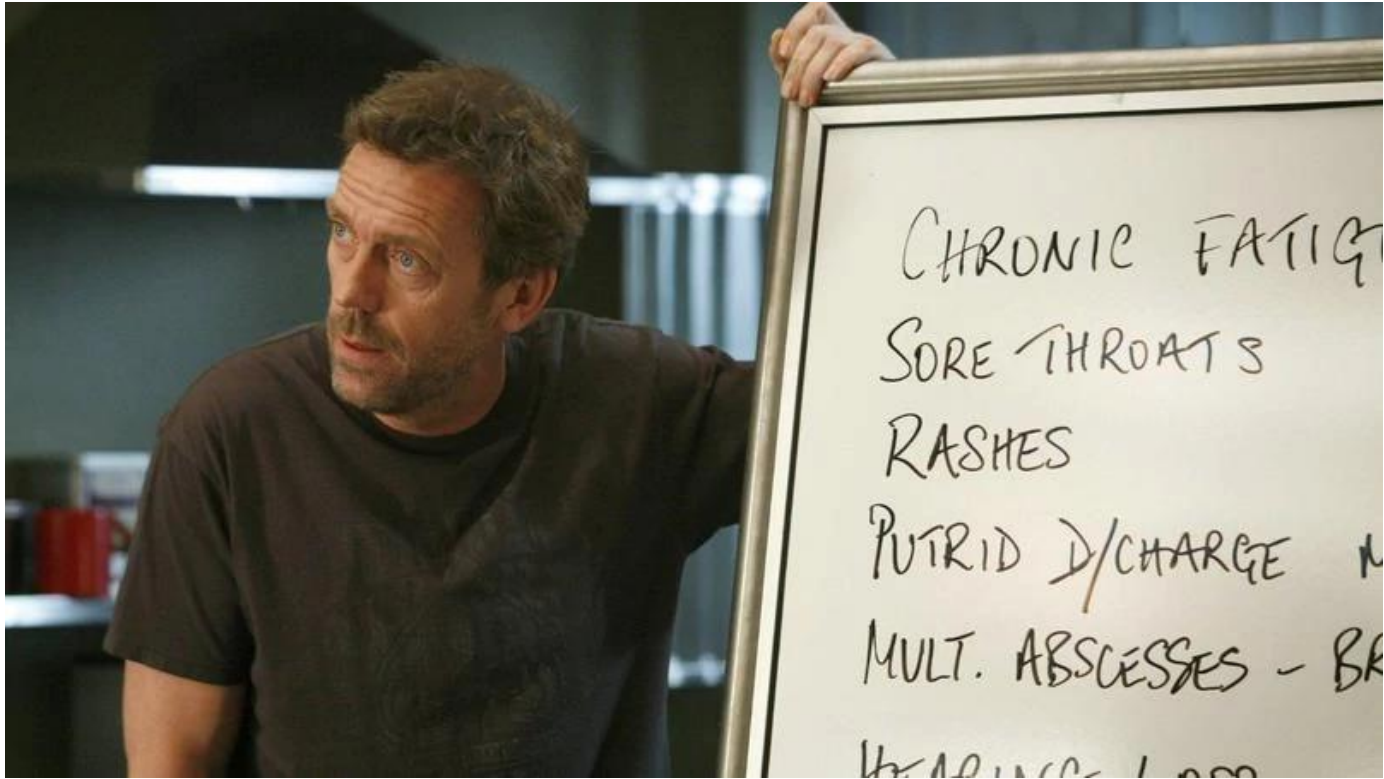 CHRONIC FATIG
SORE THROATS
RASHES
PUTRID D/CHARGE M
MULT. ABSCESSES - BR
HEARING LOSS